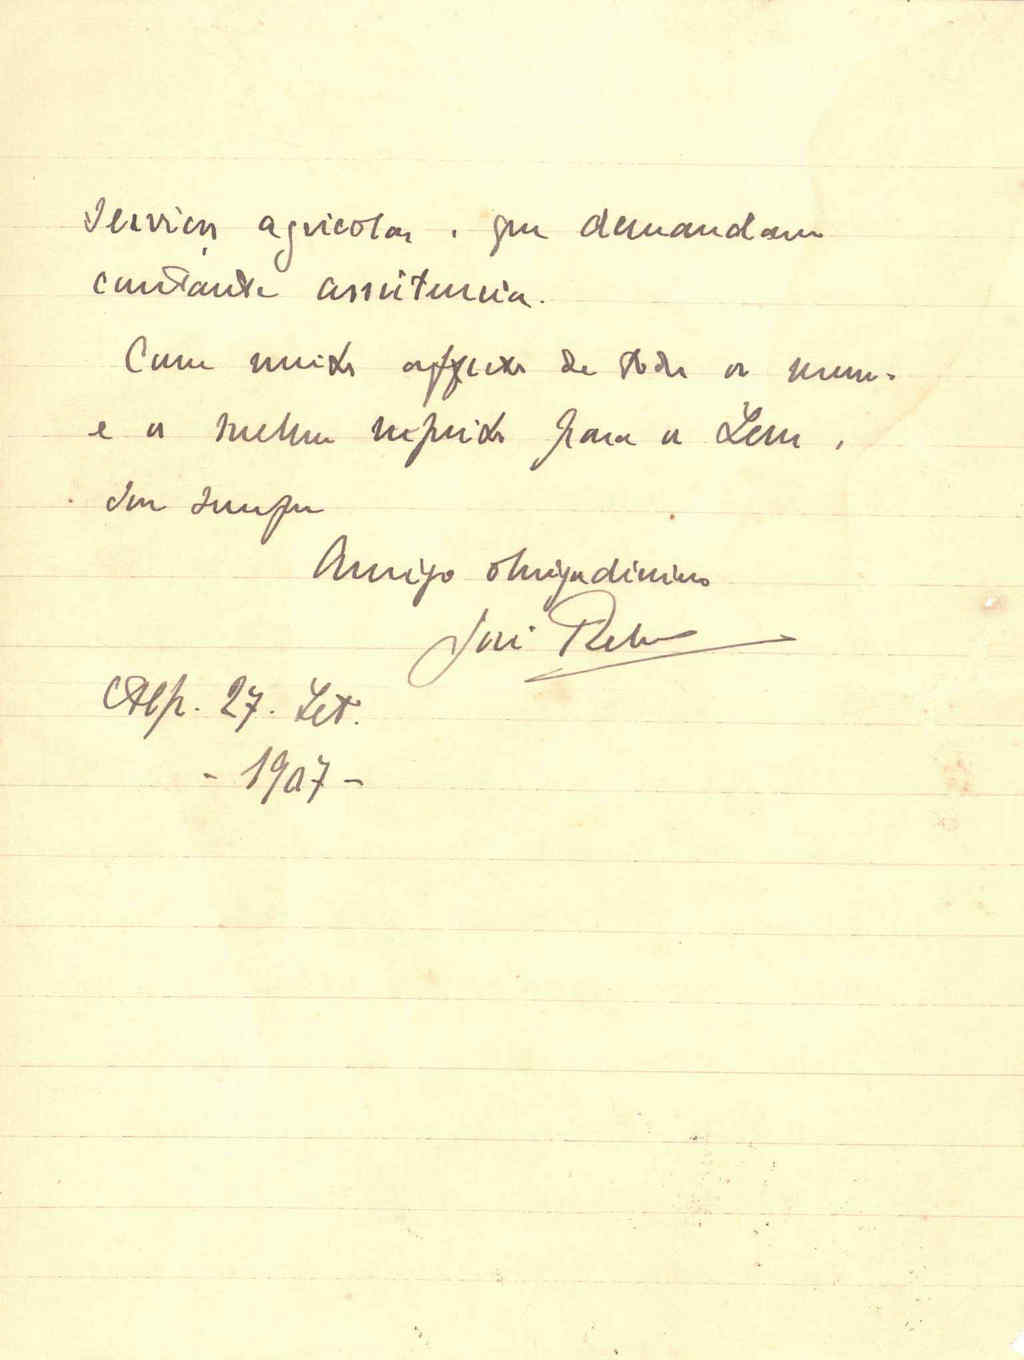 serviços agricolas, que demandam
constante assistencia.
Com muito affecto de todos os meus
e o melhor respeito para os Seus,
sou sempre
Amigo obrigadissimo
José Relvas
Alp. 27. Set.
- 1907 -